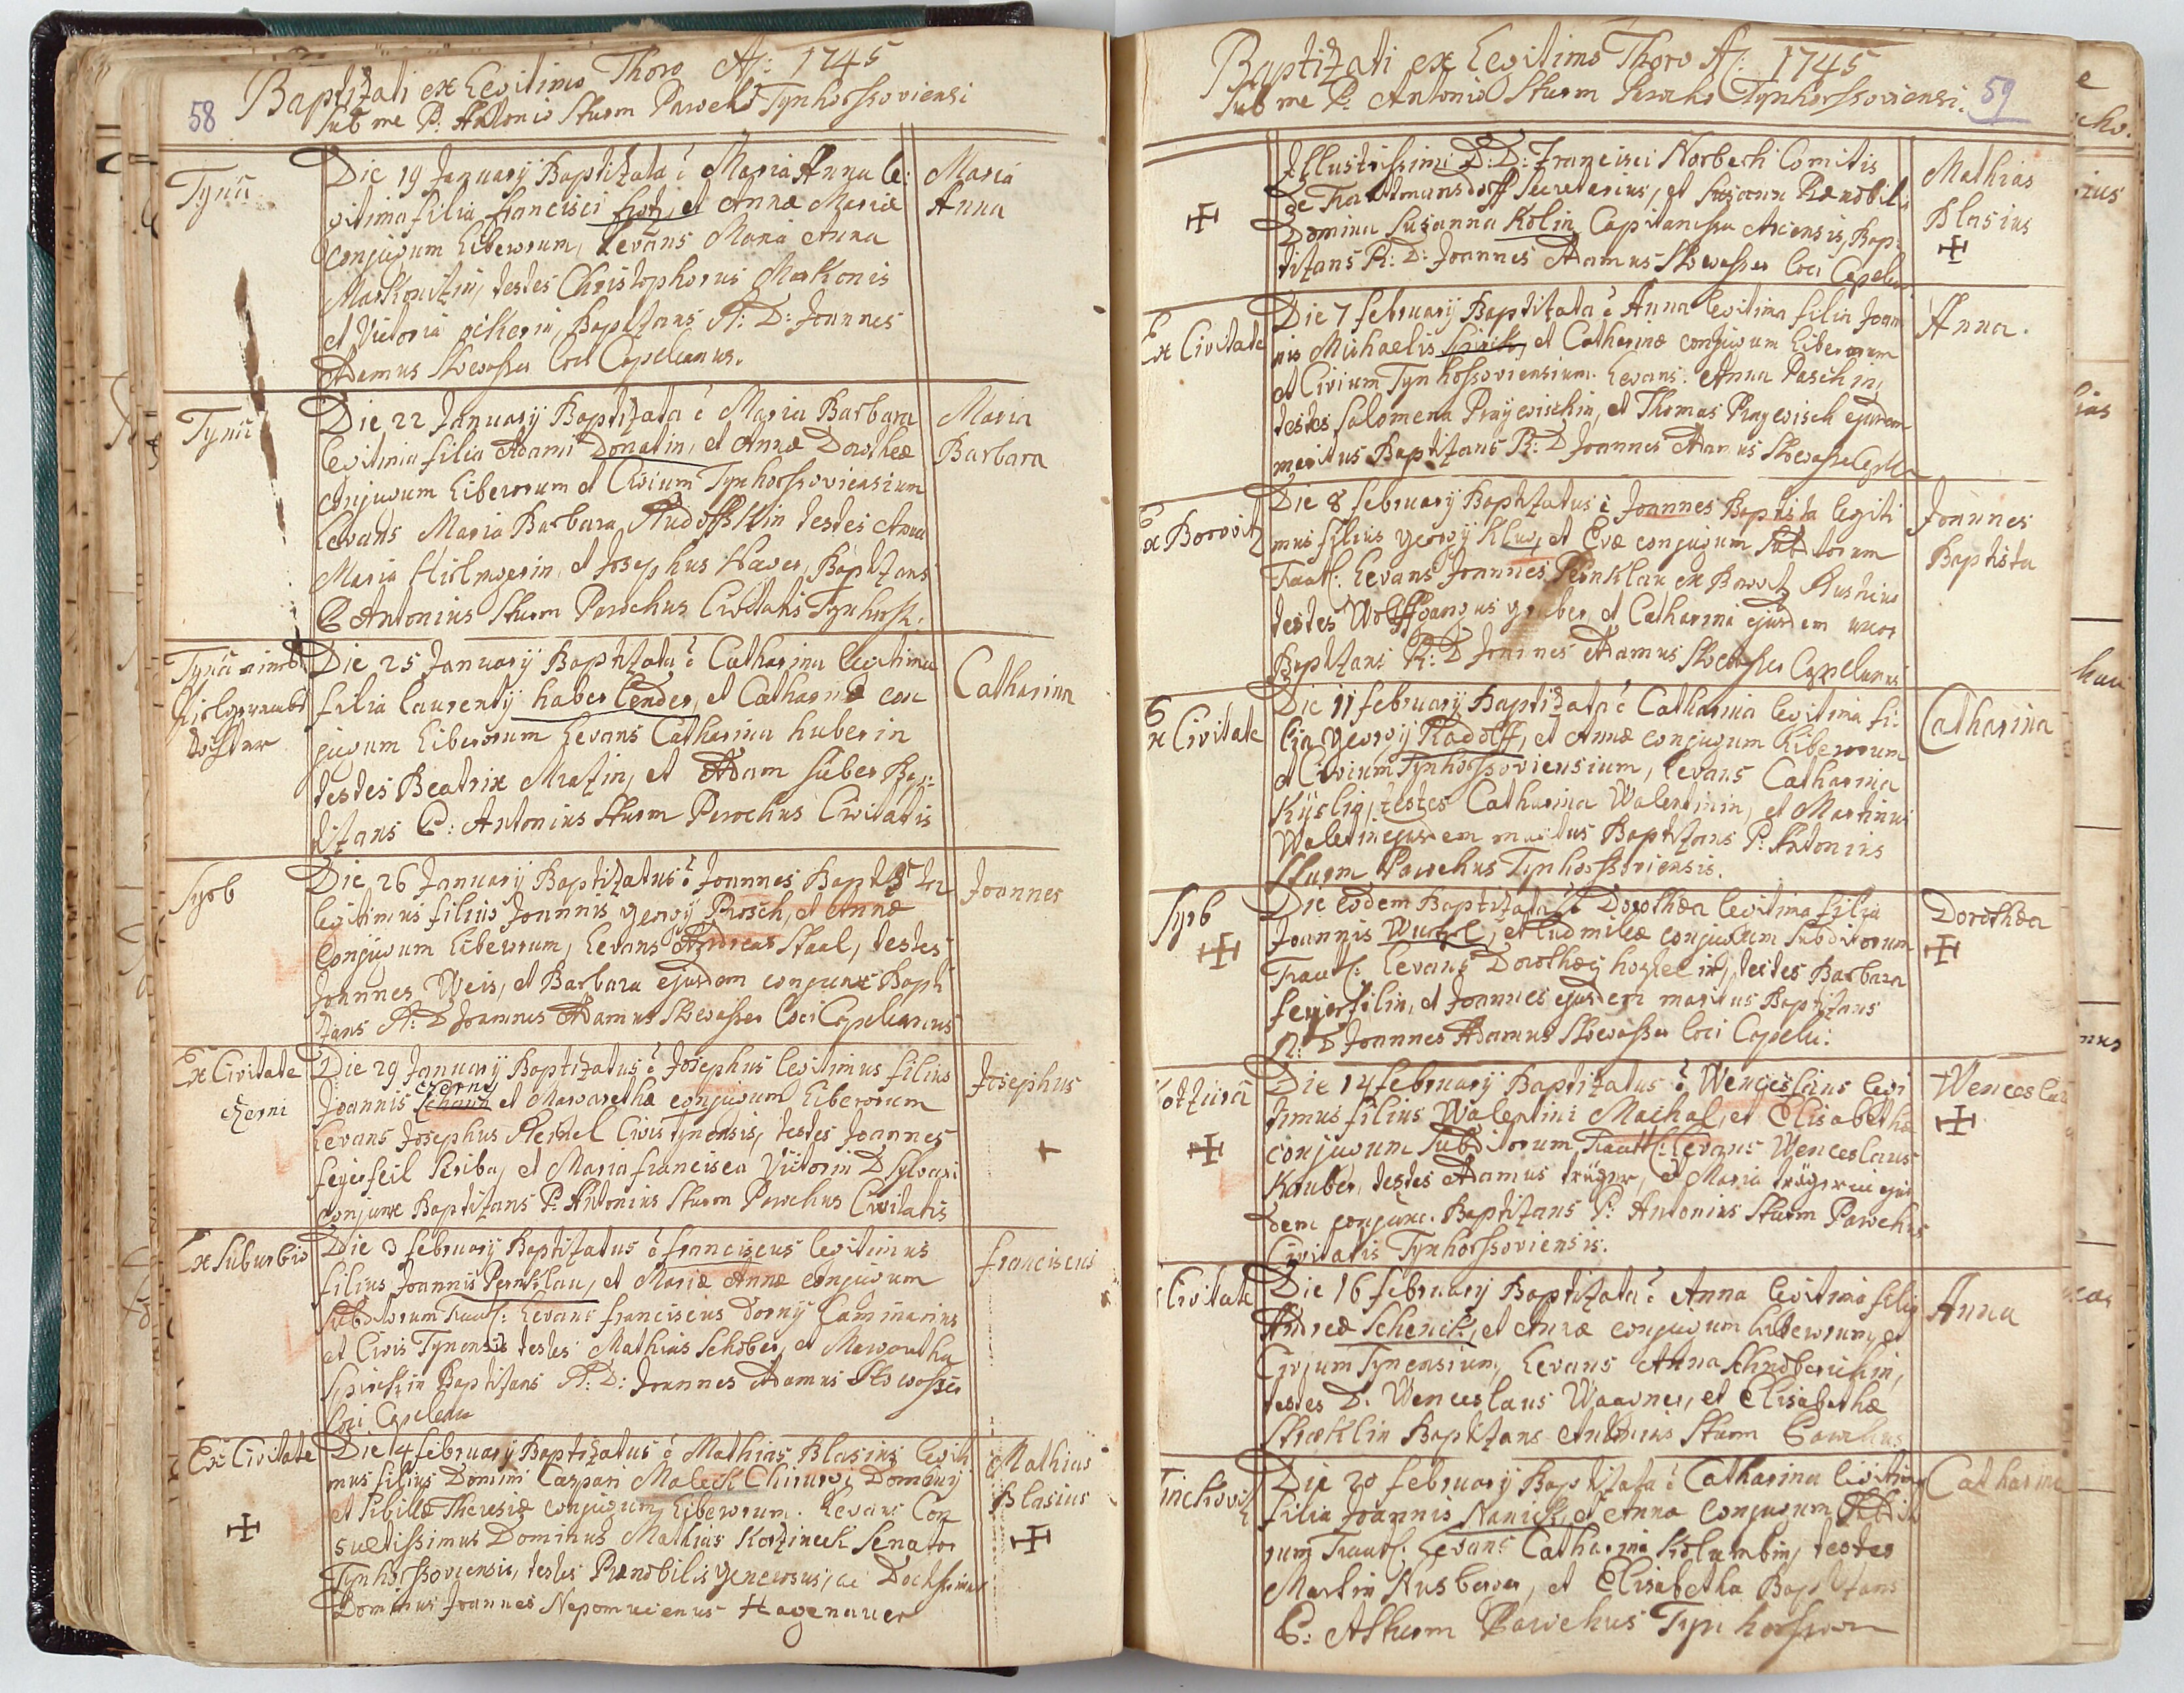 58
Baptizati ex Legitimo Thoro Aō: 1745
Sub me P: Antonio Sturm Parocho Tynhorssoviensi
Tynii
Die 19 January Baptizata ē Maria Anna le:
gitima filia francisci et Annæ Mariæ
conjugum Liberorum, Levans Maria Anna
Markonitzin, testes Christophorus Markonis
et Victoria Baptizans R: D: Joannes
Adamus Loci Capelanus.
Maria
Anna
Tynii
Die 22 January Baptizata ē Maria Barbara
legitima filia Adami Donatin, et Annæ Dorotheæ
conjugum Liberorum et Civium Tynhorssoviensium
Levans Maria Barbara Rudoffskin testes Anna
Maria et Josephus Haver, Baptizans
P Antonius Sturm Parochus Civitatis Tynhorss:
Maria
Barbara
Tynii
Die 25 January Baptizata ē Catharina legitima
filia laurentÿ haberlender, et Catharinæ con
jugum Liberorum Levans Catharina huberin
testes Beatrix Mratzin, et Adam huber Bap:
tizans P: Antonius Sturm Parochus Civitatis
Catharina
Syrb
Die 26 January Baptizatus ē Joannes Baptista
legitimus filius Joannis georgÿ Prosch, et Annæ
Conjugum Liberorum, Levans Andreas Staal, testes
Joannes Weis, et Barbara ejusdem conjunx Bapti
zans R: D Joannes Adamus Loci Capellanus
Joannes
Ex Civitate
czerni
Die 29 January Baptizatus ē Josephus legitimus filius
czerny
Joannis et Margarethæ conjugum Liberorum
Levans Josephus Civis tynensis, testes Joannes
feyerfeil Scriba, et Maria francisca Victorin D Sylvari
conjunx Baptizans P. Antonius Sturm Parochus Civitatis
Josephus
Ex Suburbio
Die 3 february Baptizatus ē franciscus legitimus
filius Joannis Pernklau, et Mariæ Annæ conjugum
Subditorum Traut: Levans franciscus Dorny Caminarius
et Civis Tynensis testes Mathias Schober, et Margaretha
Baptizans R: D: Joannes Adamus
loci Capelanus
franciscus
Ex Civitate
Die 4 february Baptizatus ē Mathias Blasius legiti
mus filius Domini Caspari Maleck Chirurgi Dominij
et Sibillæ Theresiæ conjugum Liberorum. Levans Con
sultissimus Dominus Mathias Kotzineck Senator
Tynhorssoviensis, testes Prænobilis generosus, ac Doctissimus
Dominus Joannes Nepomucenus Hagenauer
Mathias
Blasius
59
Baptizati ex Legitimo Thoro Aō: 1745
Sub me P: Antonio Sturm Parocho Tynhorssoviensi.
Illustrissimi D: D: Francisci Norberti Comitis
De Trautmansdorff Secretarius, et Prænobilis
Domina Susanna Kolin Capitanissa Bap:
tizans R: D: Joannes Adamus loci Capelan:
Mathias
Blasius
Ex Civitate
Die 7 february Baptizata ē Anna legitima filia Joan
nis Michaelis et Catharinæ conjugum Liberorum
et Civium Tynhossoviensium. Levans. Anna Paschin,
testes Salomena et Thomas ejusdem
maritus Baptizans R: D Joannes Adamus
Anna.
Ex Borovitz
Die 8 february Baptizatus ē Joannes Baptista legiti
mus filius georgÿ Klug, et Evæ conjugum Subditorum
Traut: Levans Joannes Pernklau ex Rusticus
testes Wolffgangus gruber, et Catharina ejusdem uxor
Baptizans R: D Joannes Adamus Capelanus
Joannes
Baptista
Ex Civitate
Die 11 february Baptizata ē Catharina legitima fi:
lia georgÿ Radolff, et Annæ conjugum Liberorum
et Civium Tynhorssoviensium, Levans Catharina
testes Catharina Walentinin, et Martinus
Waletin ejusdem maritus Baptizans P. Antonius
Sturm Parochus Tynhorssoviensis.
Catharina
Syrb
Die eodem Baptizata ē Dorothea legitima filia
Joannis Wurzel, et Ludmilæ conjugum Subditorum
Traut: Levans testes Barbara
feyerfilin, et Joannes ejusdem maritus Baptizans
R: D Joannes Adamus loci Capella:
Dorothea
Die 14 february Baptizatus ē Wenceslaus legi
timus filius Walentini Machal, et Elisabethæ
conjugum Subditorum Traut: Levans Wenceslaus
Kauber, testes Adamus träger, et Maria trägerin ejus
dem conjunx. Baptizans P: Antonius Sturm Parochus
Civitatis Tynhorssoviensis.
Wenceslaus
Civitate
Die 16 february Baptizata ē Anna legitima filia
Andreæ Schenck, et Annæ conjugum Liberorum, et
Civium Tynensium, Levans Anna
testes D. Wenceslaus Waagner, et Elisabetha
Baptizans Antonius Sturm Parochus
Anna
Die 20 february Baptizata ē Catharina legitima
filia Joannis Hanick, et Annæ conjugum Subdito
rum Traut: Levans Catharina Kolumbin, testes
Martin Nusberger, et Elisabetha Baptizans
P: A Sturm Parochus Tynhorssov
Catharina